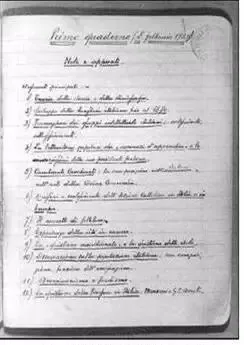 Primo quaderno (8 febbraio 1929)
Note e appunti.
Argomenti principali:
1) Teoria della storia e della storiografia.
2) Sviluppo della borghesia italiana fino al 1870.
3) Formazione dei gruppi intellettuali italiani:
4) La letteratura popolare dei "romanzi d'appendice" e le
5) Cavalcante Cavalcanti: la sua posizione nella
e nell'arte della Divina Commedia.
6) Origini e svolgimento dell'Azione Cattolica in Italia e in
Europa.
7) Il concetto di folklore.
8) Esperienze della vita in carcere.
9) La "quistione meridionale" e la quistione delle isole.
10) Osservazioni sulla popolazione italiana: sua
funzione dell'emigrazione.
11) Americanismo e fordismo.
12) La quistione della lingua in Italia: Manzoni e G. I. Ascoli.